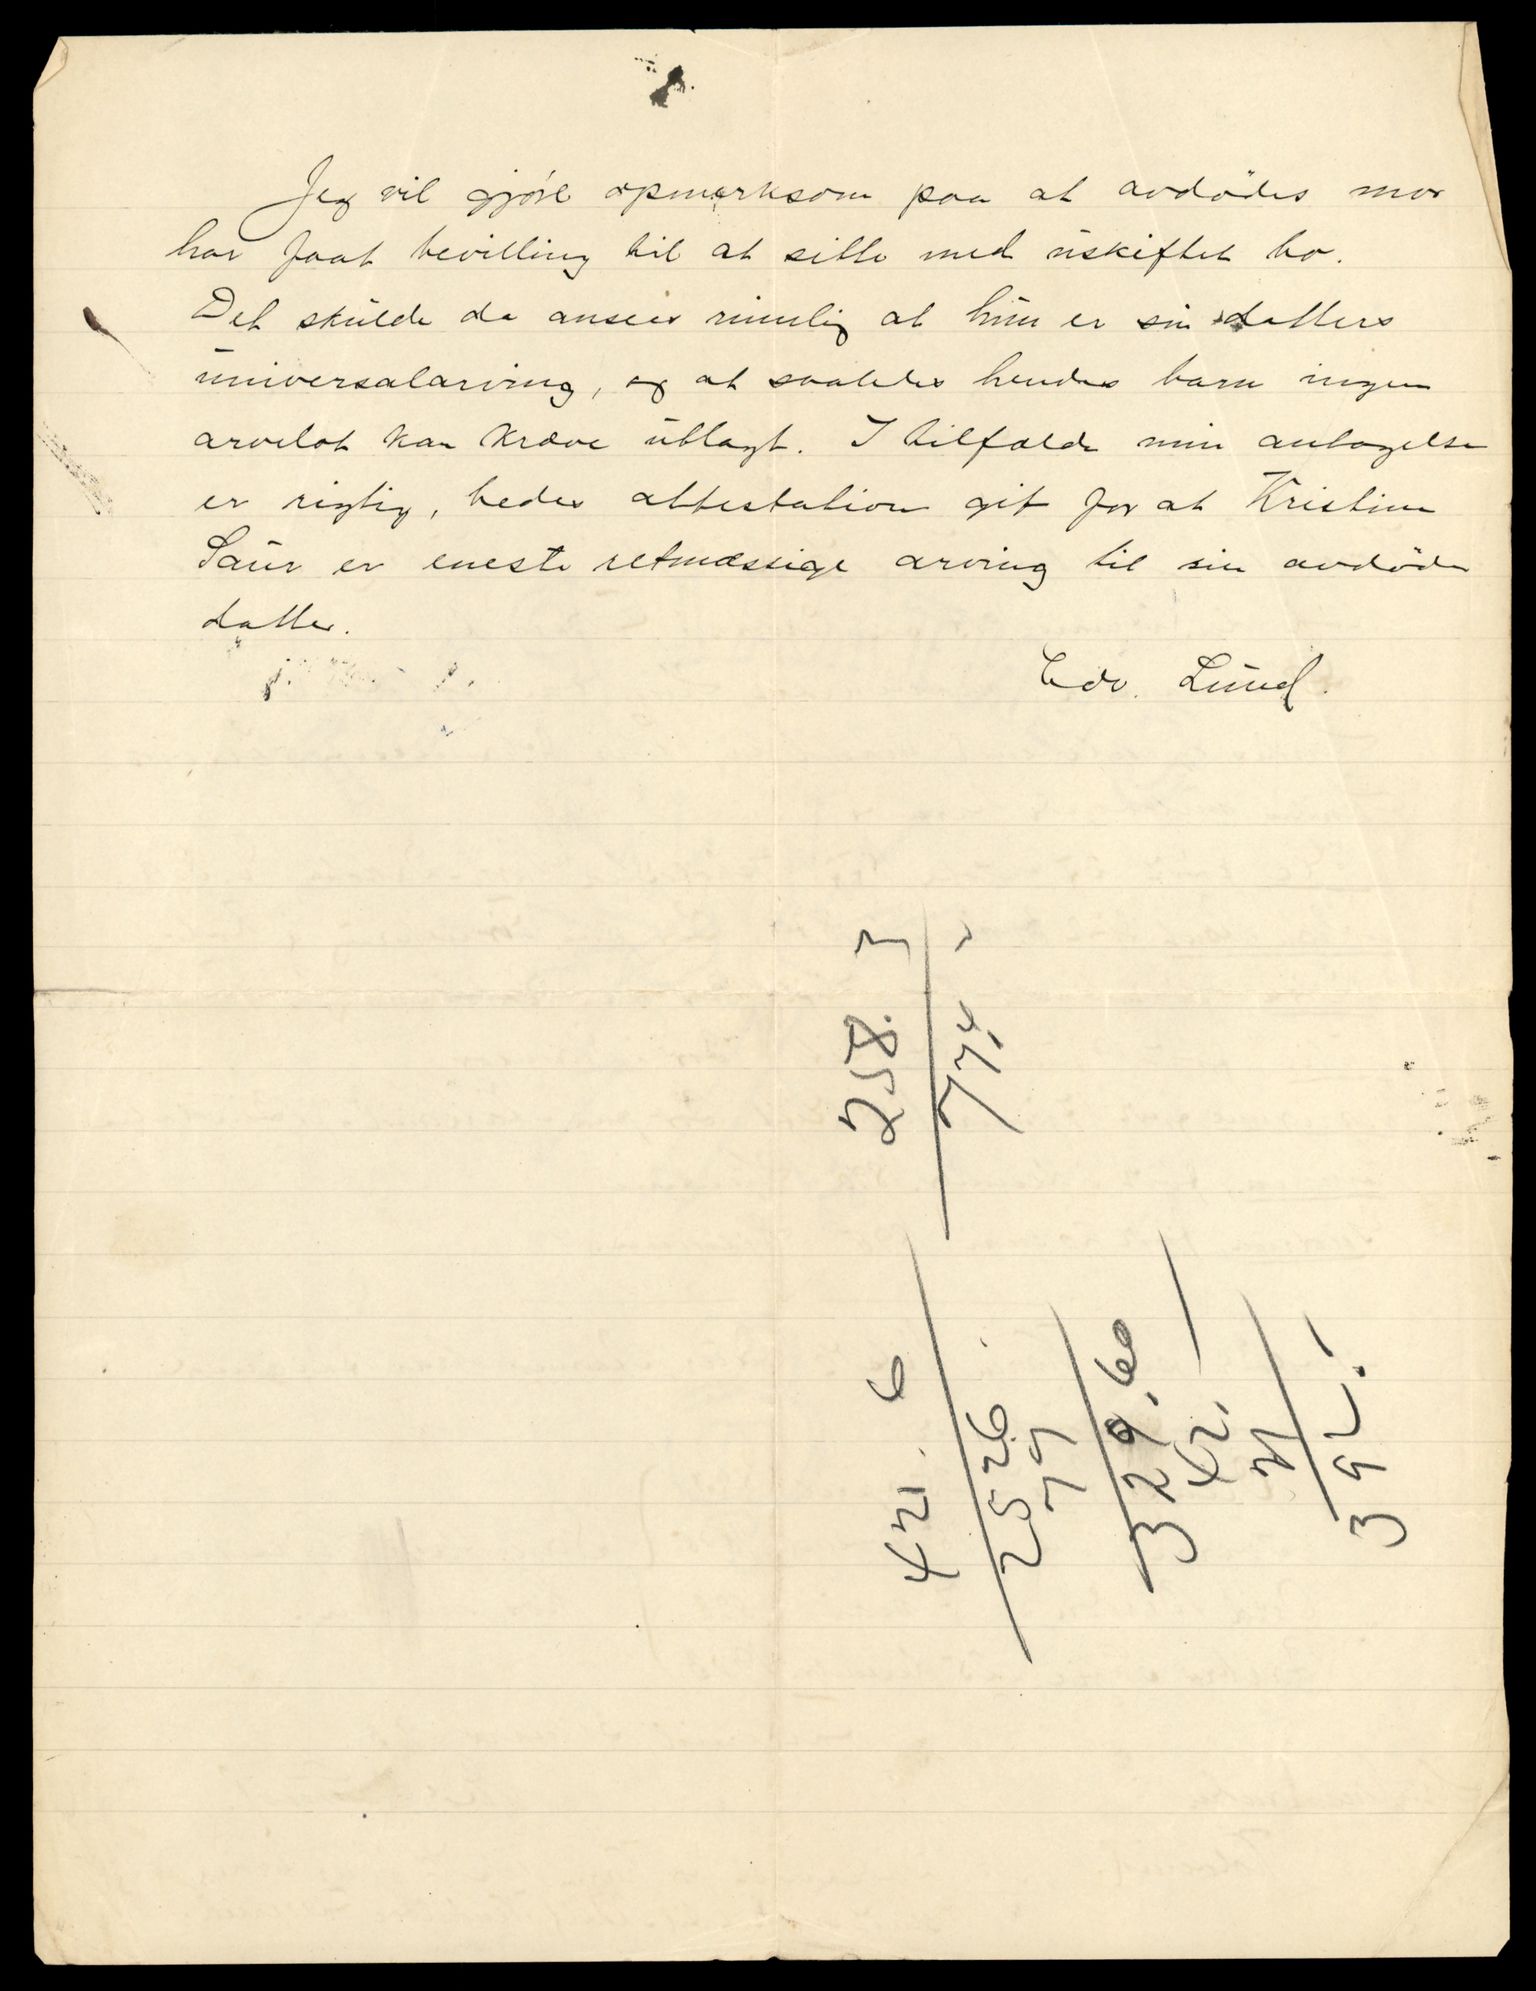 Jeg vil gjøre opmerksom paa at avdødes mor
har faat bevilling til at sitte med uskiftet bo.
Det skulde da ansees rimelig at hun er sin datters
universalarving, og at saaledes hendes barn ingen
arvelot kan kræve utlagt. I tilfælde min antagelse
er rigtig, bedes attestation git for at Kristine
Saur er eneste retmæssige arving til sin avdøde
datter.
Edv. Lund.
258. 3
774
421. 6
2526
77
329.60
42,
21
392.